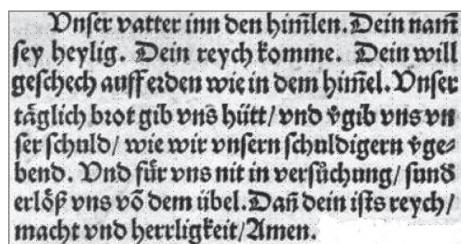 Vnser vatter inn den him̃len. Dein nam̃
sey heylig. Dein reych komme. Dein will
geschech auff erden wie in dem him̃el. Vnser
täglich brot gib vns hütt/ vnd v̂gib vns vn
ser schuld/ wie wir vnsern schuldigern v̂ge⸗
bend. Vnd für vns nit in versůchung/ sund̾
erlöß vns võ dem übel. Dañ dein ists reych/
macht vnd herrligkeit/ Amen.